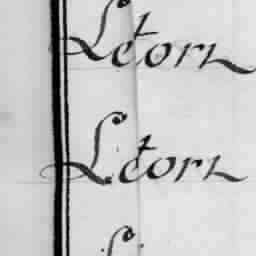 Letorz
Letorz